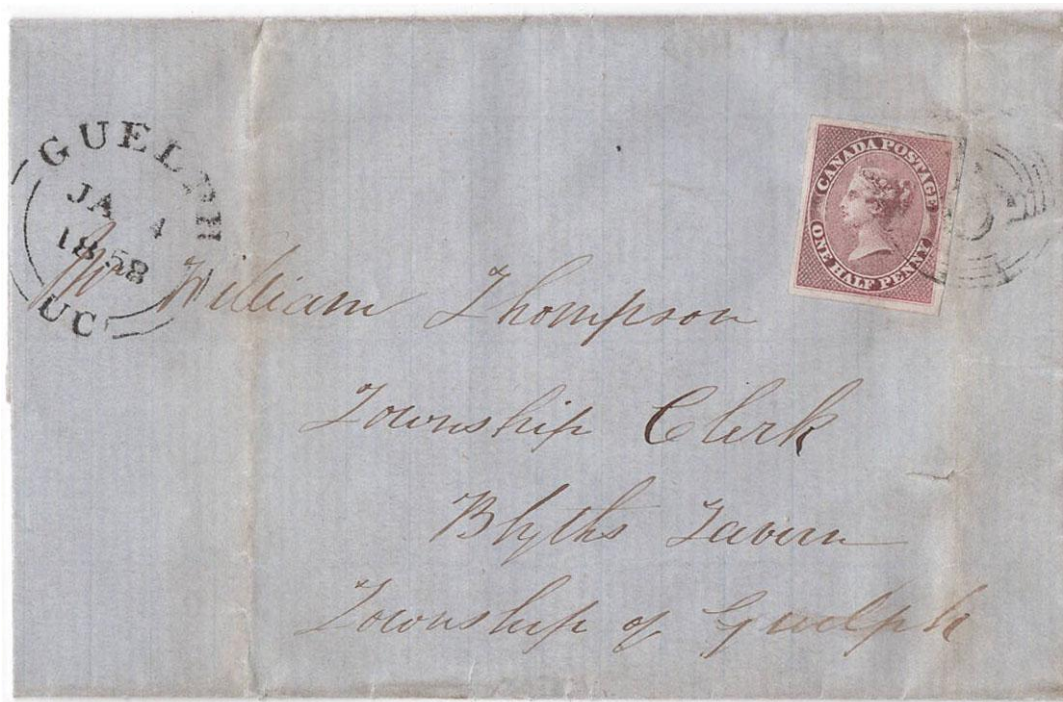 GUELPH
JA 4
1858
UC
CANADA POSTAGE
ONE HALF PENNY
Mr William Thompson
Township Clerk
Blyths Tavern
Township of Guelph